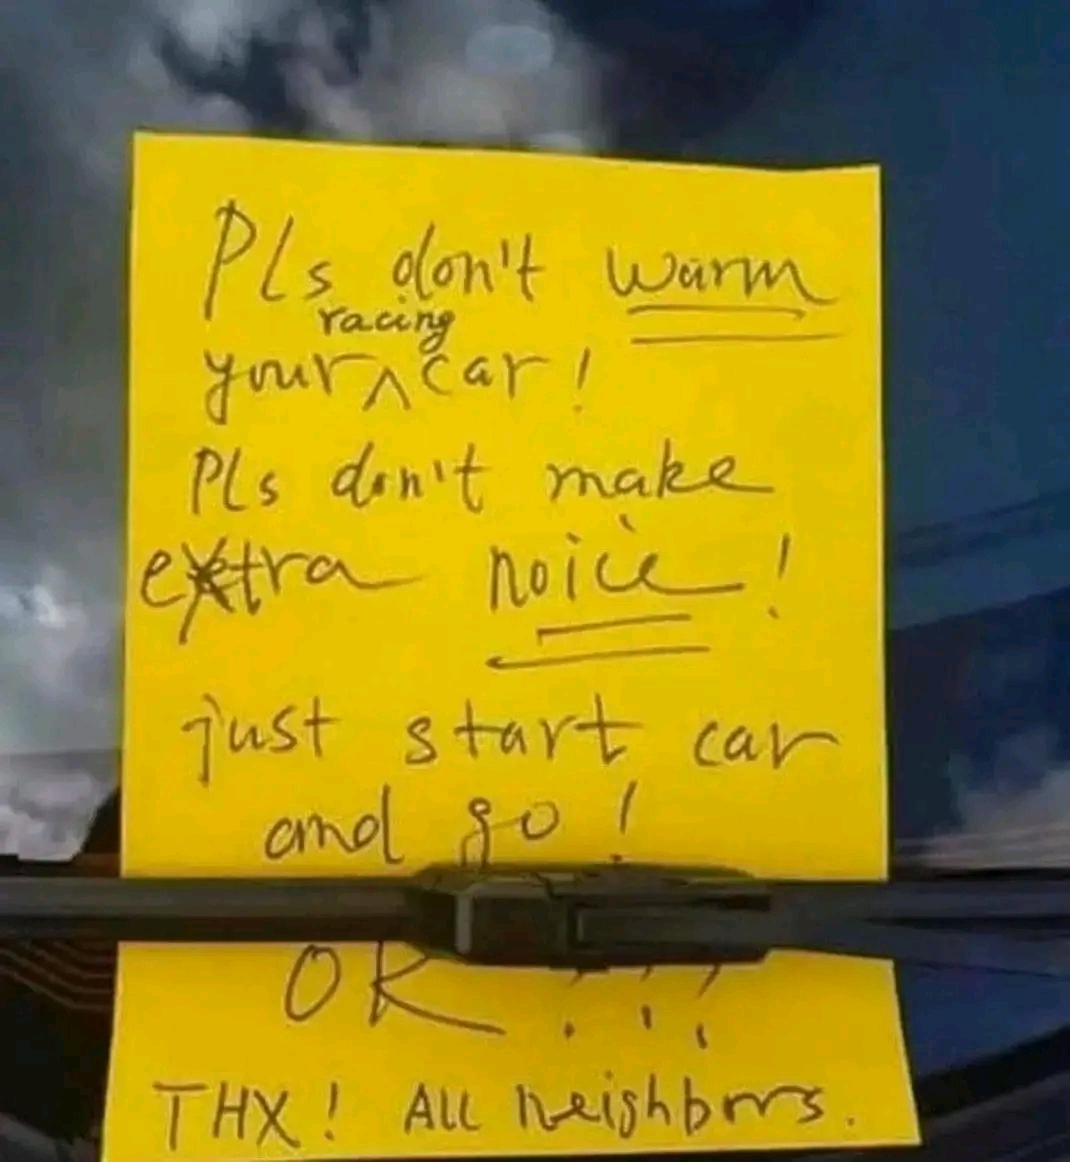 Pls don't warm
your ^ racing car!
Pls don't make
extra noice!
just start car
and go!
OK ???
THX! All neighbors.